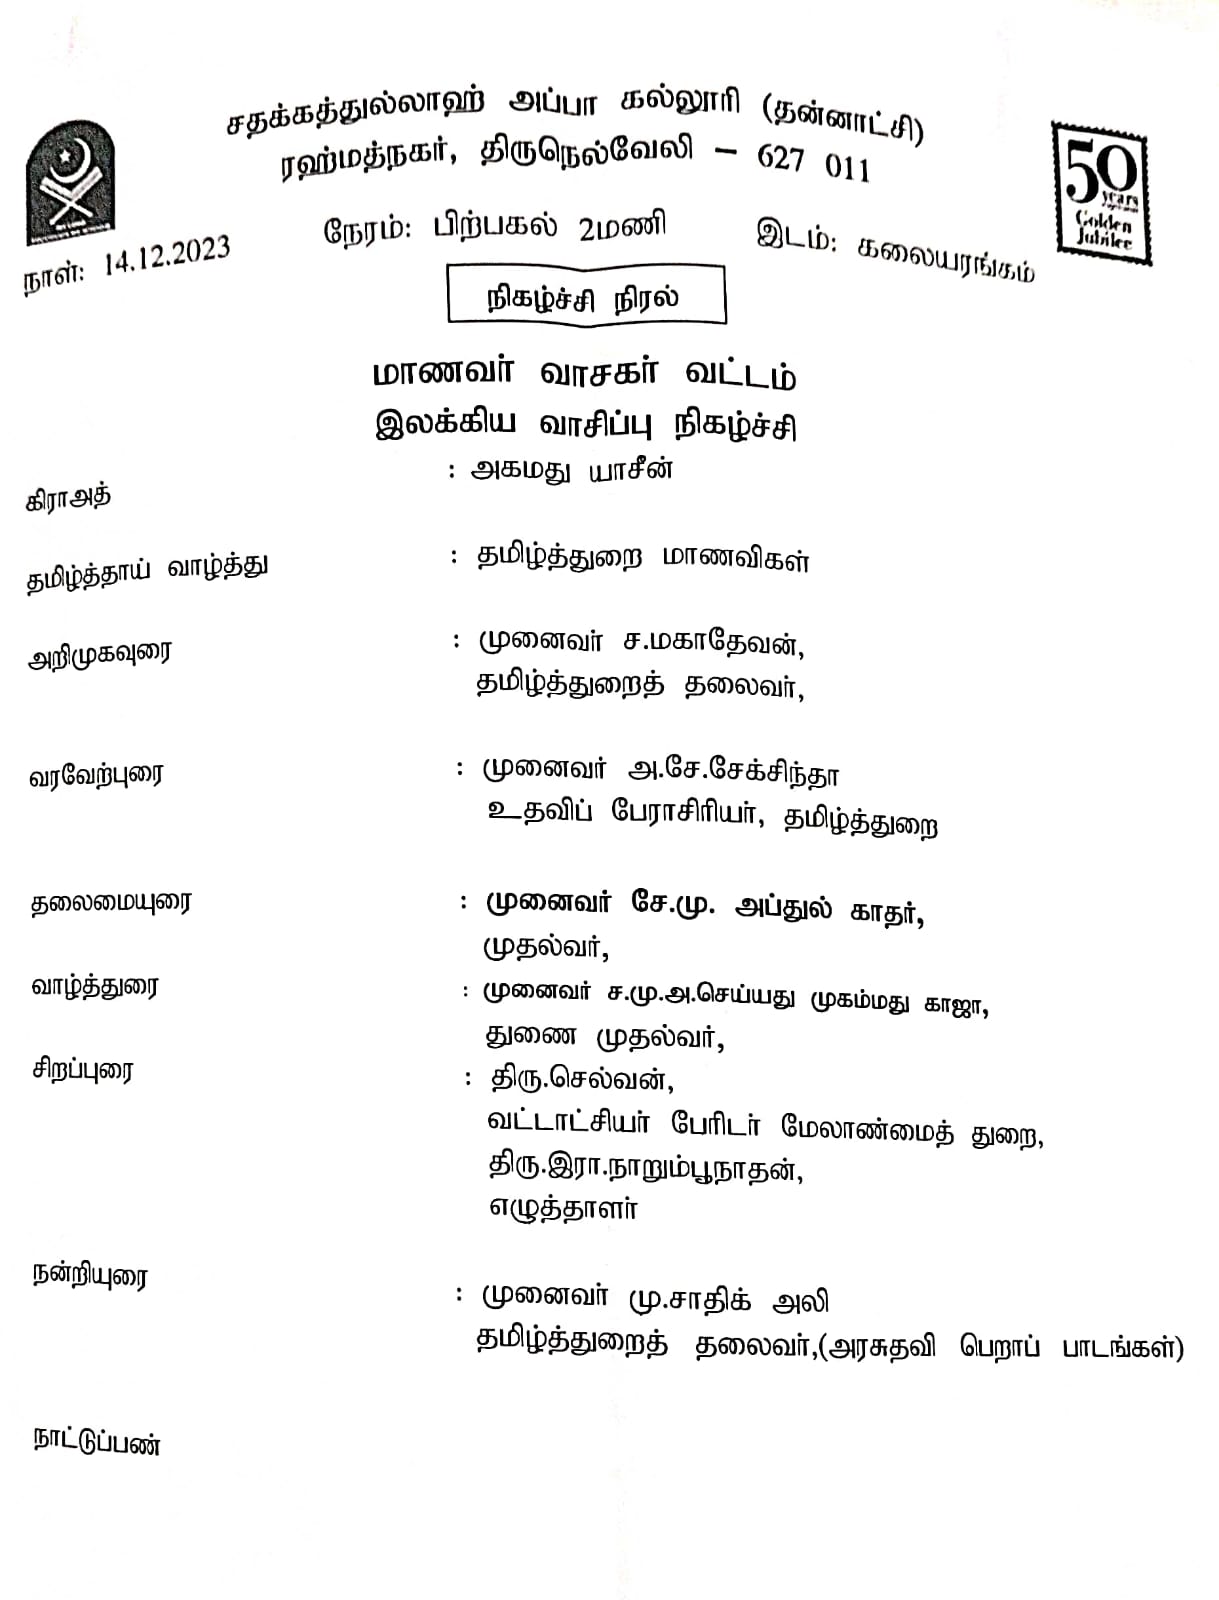 சதக்கத்துல்லாஹ் அப்பா கல்லூரி (தன்னாட்சி)
ரஹ்மத்நகர், திருநெல்வேலி – 627 011
50
years
Golden
Jubilee
நாள்: 14.12.2023 நேரம்: பிற்பகல் 2மணி இடம்: கலையரங்கம்
நிகழ்ச்சி நிரல்
மாணவர் வாசகர் வட்டம்
இலக்கிய வாசிப்பு நிகழ்ச்சி
கிராஅத் : அகமது யாசீன்
தமிழ்த்தாய் வாழ்த்து : தமிழ்த்துறை மாணவிகள்
அறிமுகவுரை : முனைவர் ச.மகாதேவன்,
தமிழ்த்துறைத் தலைவர்,
வரவேற்புரை : முனைவர் அ.சே.சேக்சிந்தா
உதவிப் பேராசிரியர், தமிழ்த்துறை
தலைமையுரை : முனைவர் சே.மு. அப்துல் காதர்,
முதல்வர்,
வாழ்த்துரை : முனைவர் ச.மு.அ.செய்யது முகம்மது காஜா,
துணை முதல்வர்,
சிறப்புரை : திரு.செல்வன்,
வட்டாட்சியர் பேரிடர் மேலாண்மைத் துறை,
திரு.இரா.நாறும்பூநாதன்,
எழுத்தாளர்
நன்றியுரை : முனைவர் மு.சாதிக் அலி
தமிழ்த்துறைத் தலைவர்,(அரசுதவி பெறாப் பாடங்கள்)
நாட்டுப்பண்